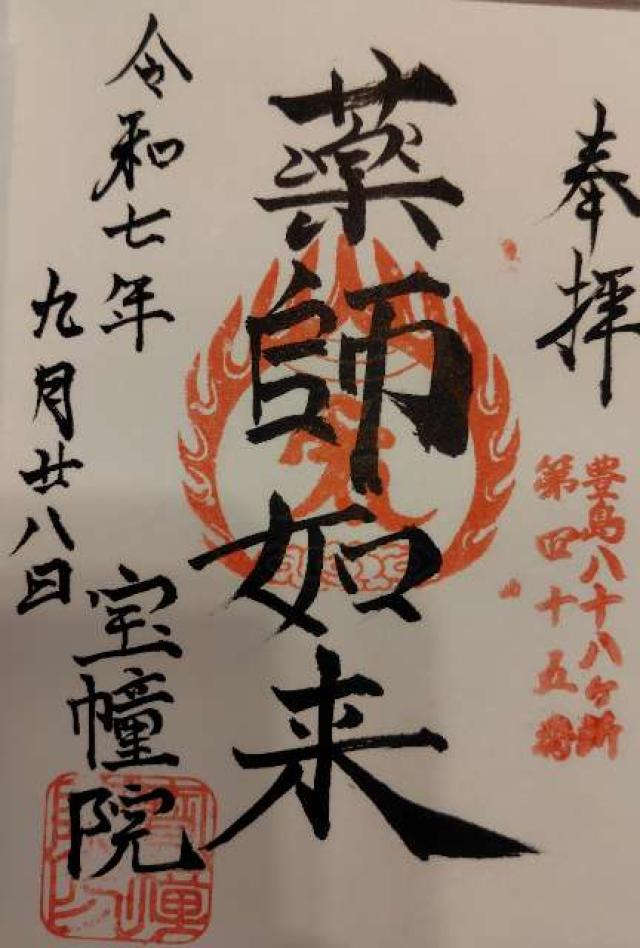 奉拝
豊島八十八ヶ所
第四十五番
薬師如来
令和七年
九月廿八日
宝幢院